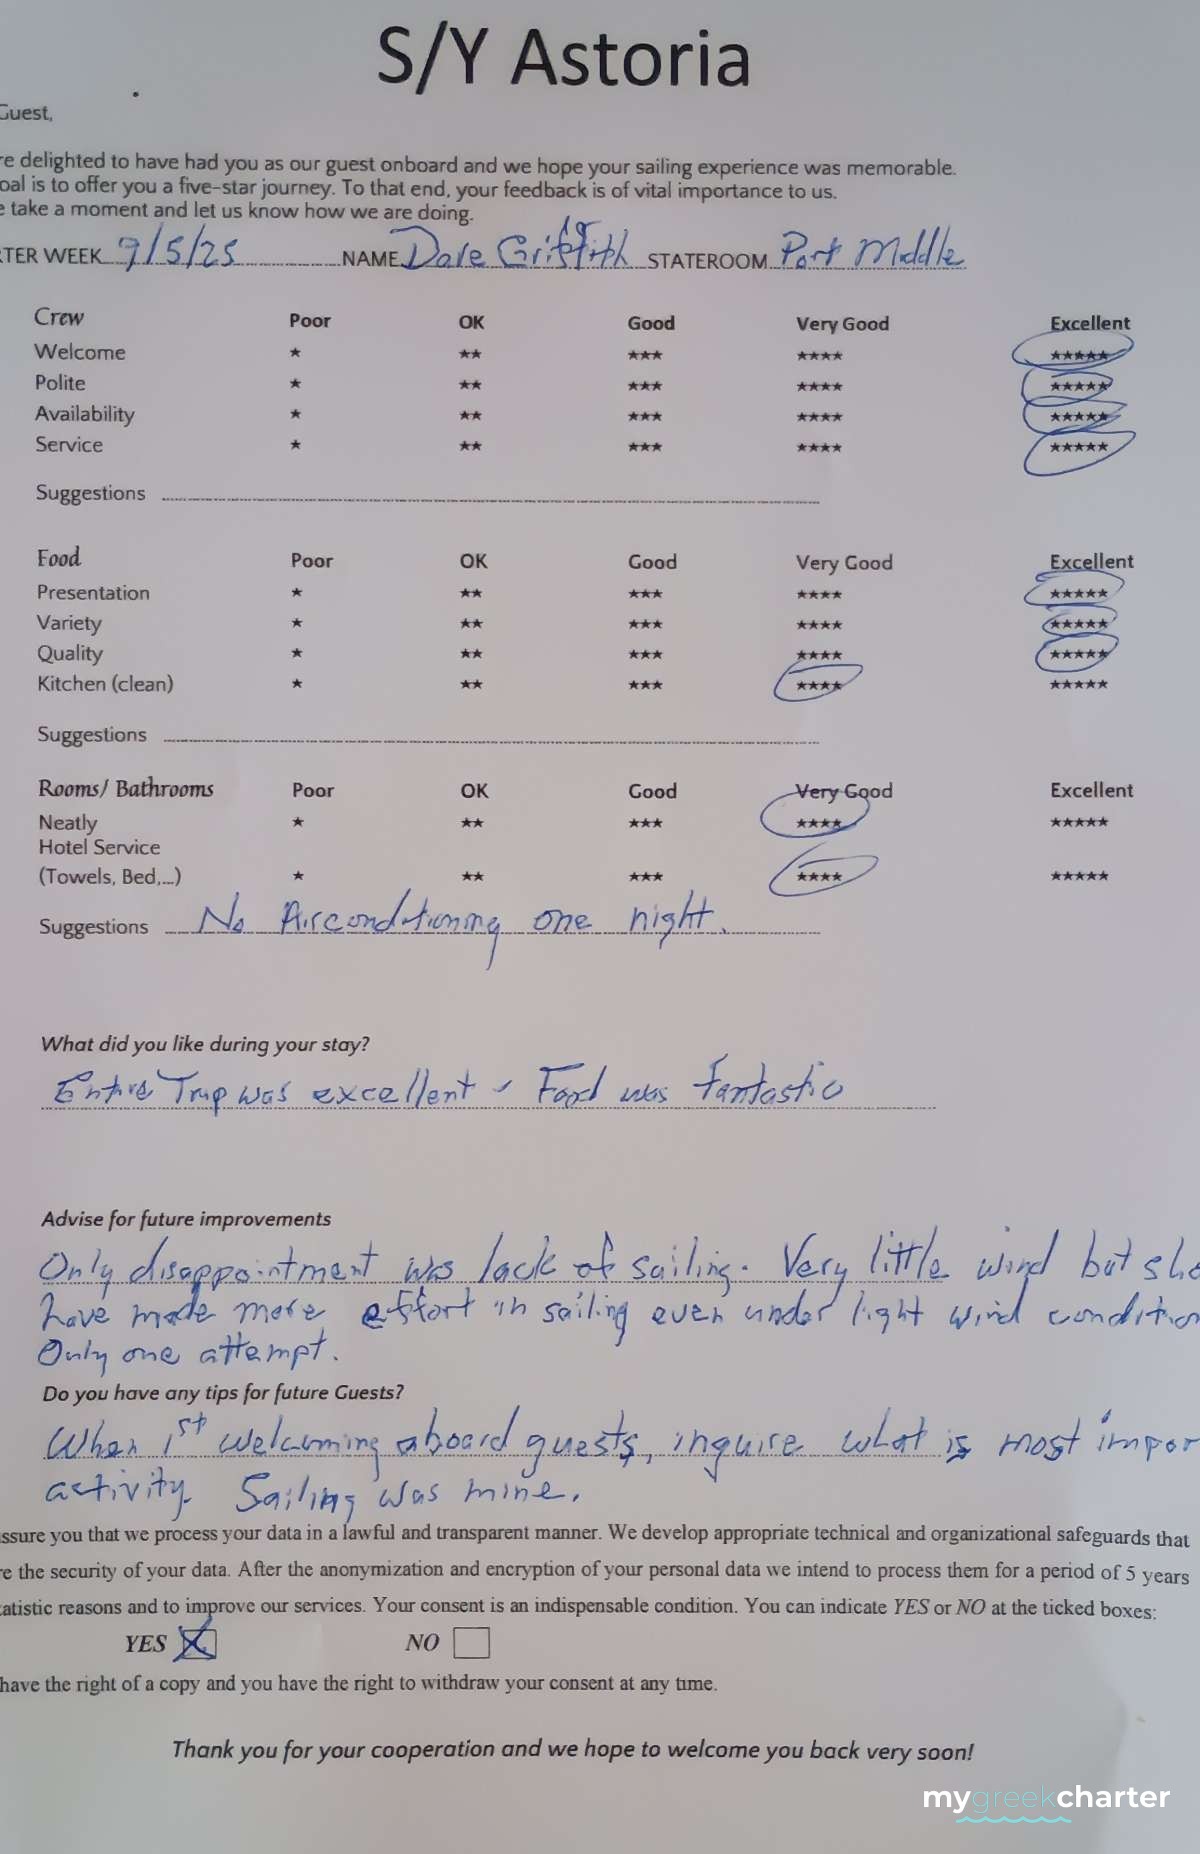 S/Y Astoria
Guest,
re delighted to have had you as our guest onboard and we hope your sailing experience was memorable.
oal is to offer you a five-star journey. To that end, your feedback is of vital importance to us.
e take a moment and let us know how we are doing.
TER WEEK 9/5/25 NAME Dale Griffith STATEROOM Port Middle
Crew Poor OK Good Very Good Excellent
Welcome ★ ★★ ★★★ ★★★★ ★★★★★
Polite ★ ★★ ★★★ ★★★★ ★★★★★
Availability ★ ★★ ★★★ ★★★★ ★★★★★
Service ★ ★★ ★★★ ★★★★ ★★★★★
Suggestions
Food Poor OK Good Very Good Excellent
Presentation ★ ★★ ★★★ ★★★★ ★★★★★
Variety ★ ★★ ★★★ ★★★★ ★★★★★
Quality ★ ★★ ★★★ ★★★★ ★★★★★
Kitchen (clean) ★ ★★ ★★★ ★★★★ ★★★★★
Suggestions
Rooms/ Bathrooms Poor OK Good Very Good Excellent
Neatly ★ ★★ ★★★ ★★★★ ★★★★★
Hotel Service
(Towels, Bed,...) ★ ★★ ★★★ ★★★★ ★★★★★
Suggestions No Airconditioning one night.
What did you like during your stay?
Entire Trip was excellent - Food was fantastic
Advise for future improvements
Only disappointment was lack of sailing. Very little wind but sho
have made more effort in sailing even under light wind condition
Only one attempt.
Do you have any tips for future Guests?
When 1st welcoming aboard guests, inquire what is most impor
activity. Sailing was mine.
assure you that we process your data in a lawful and transparent manner. We develop appropriate technical and organizational safeguards that
re the security of your data. After the anonymization and encryption of your personal data we intend to process them for a period of 5 years
tatistic reasons and to improve our services. Your consent is an indispensable condition. You can indicate YES or NO at the ticked boxes:
YES NO
have the right of a copy and you have the right to withdraw your consent at any time.
Thank you for your cooperation and we hope to welcome you back very soon!
mygreekcharter